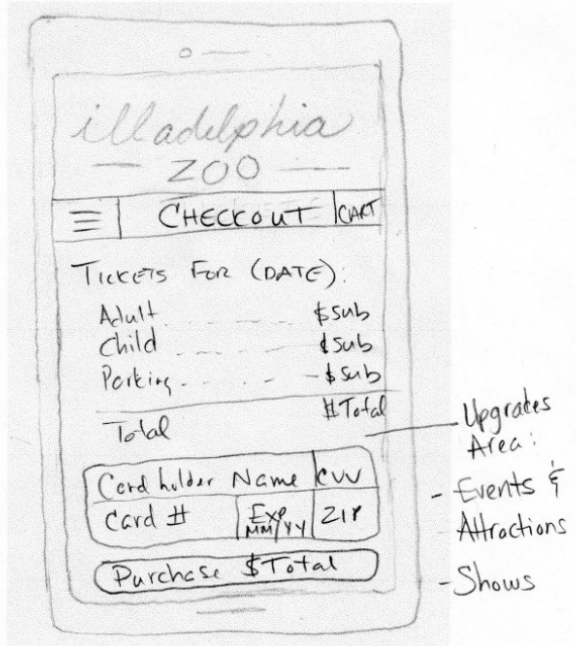 illadelphia
ZOO
CHECKOUT CART
TICKETS FOR (DATE):
Adult $sub
Child $sub
Parking $sub
Total $Total
Card holder Name CVV
Card # Exp MM/YY ZIP
Purchase $Total
Upgrades
Area:
- Events &
Attractions
- Shows